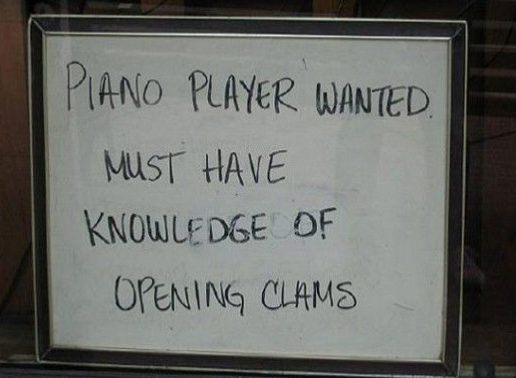 PIANO PLAYER WANTED.
MUST HAVE
KNOWLEDGE OF
OPENING CLAMS